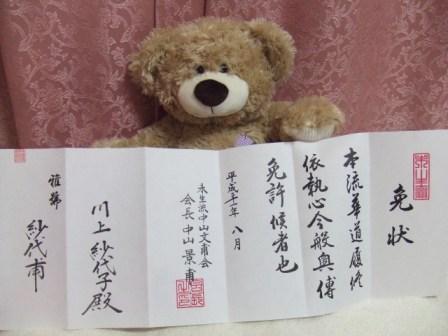 免状
本流華道履修
依執心今般奥傳
免許候者也
平成二十一年八月
未生流中山文甫会
会長中山景甫
川上紗代子殿
雅号
紗代甫